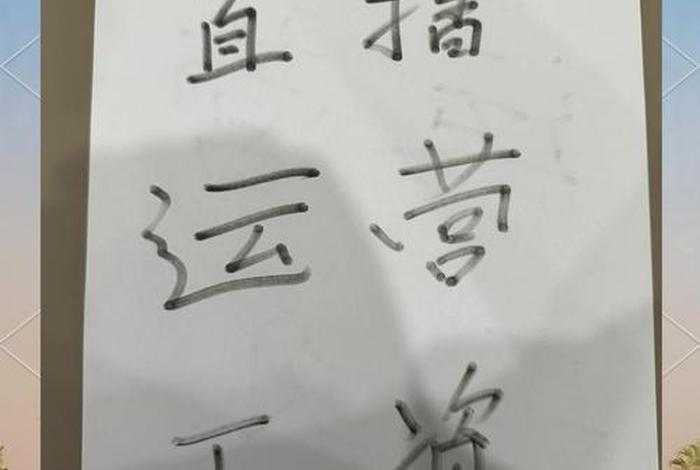 直播
运营
工资